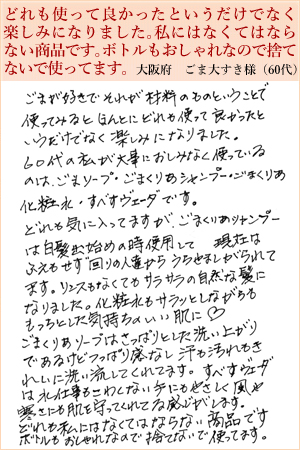 どれも使って良かったというだけでなく
楽しみになりました。私にはなくてはなら
ない商品です。ボトルもおしゃれなので捨て
ないで使ってます。 大阪府 ごま大すき様（60代）
ごまが好きでそれが材料のものということで
使ってみるとほんとにどれも使って良かったと
いうだけでなく楽しみになりました。
60代の私が大事におしみなく使っている
のは、ごまソープ・ごまくりあシャンプー・ごまくりあ
化粧水・すべすヴェーダです。
どれも気に入ってますが、ごまくりあシャンプー
は白髪出始めの時使用して 現在は
ふえもせず回りの人達からうらやましがられて
ます。リンスもなくてもサラサラの自然な髪に
なりました。化粧水もサラッとしながらも
もっちとした気持ちのいい肌に♡
ごまくりあソープはさっぱりとした洗い上がり
であるけどつっぱり感なし 汗も汚れもき
れいに洗い流してくれてます。すべすヴェーダ
は水仕事もこわくない手にもやさしく風や
寒さにも肌を守ってくれてる感じがします。
どれも私にはなくてはならない商品です
ボトルもおしゃれなので捨てないで使ってます。